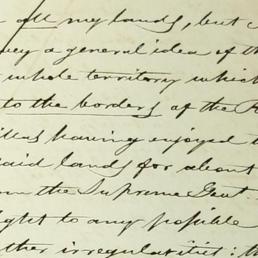 all my lands, but
vey a general idea of th
whole territory which
to the borders of the R
illas having enjoyed
said lands for about
om the Supreme Govt.
ight to any possible
ther irregularities: th